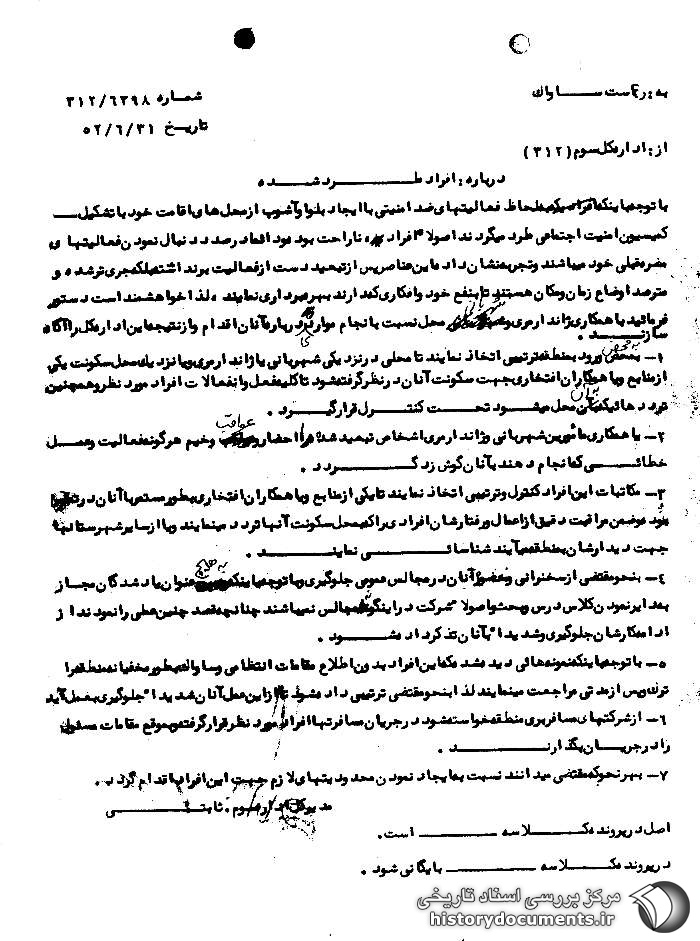 به: ریاست ساواک
شماره ۳۱۲/۶۳۹۸
تاریخ ۵۲/۶/۳۱
از: اداره کل سوم (۳۱۲)
درباره: افراد طرد شده
با توجه باینکه افرادیکه بلحاظ فعالیتهای ضد امنیتی با ایجاد بلوا و آشوب از محل های اقامت خود با تشکیل
کمیسیون امنیت اجتماعی طرد میگردند اصولا" افراد ناراحت بوده و در صدد دنبال نمودن فعالیتهای
مضره قبلی خود میباشند و تجربه نشان داده این عناصر پس از تبعید دست از فعالیت برنداشته بلکه جری تر شده و
مترصد اوضاع زمان و مکان هستند تا بنفع خود و افکاری که دارند بهره برداری نمایند، لذا خواهشمند است دستور
فرمائید با همکاری ژاندارمری و شهربانی محل نسبت با نجام موارد زیر درباره آنان اقدام و از نتیجه این اداره کل را آگاه
سازند.
۱- به محض ورود بمنطقه ترتیبی اتخاذ نمایند تا محلی در نزدیکی شهربانی یا ژاندارمری و یا نزدیک محل سکونت یکی
از منابع و یا همکاران افتخاری جهت سکونت آنان در نظر گرفته شود تا کلیه فعل و انفعالات افراد مورد نظر و همچنین
تردد هائیکه بآن محل میشود تحت کنترل قرار گیرد.
۲- با همکاری مأمورین شهربانی و ژاندارمری اشخاص تبعید شده را احضار و عواقب وخیم هرگونه فعالیت و عمل
خطائی که انجام دهند بآنان گوش زد گردد.
۳- مکاتبات این افراد کنترل و ترتیبی اتخاذ نمایند تا یکی از منابع و یا همکاران افتخاری بطور مستمر با آنان در تماس
بوده و ضمن مراقبت دقیق از اعمال و رفتارشان افرادی را که بمحل سکونت آنها تردد مینمایند و یا از سایر شهرستانها
جهت دیدارشان بمنطقه میآیند شناسائی نمایند.
۴- بنحو مقتضی از سخنرانی و حضور آنان در مجالس عمومی جلوگیری و با توجه باینکه به هیچ عنوان یاد شدگان مجاز
به دایر نمودن کلاس درس و بحث و اصولا" شرکت در اینگونه مجالس نمیباشند چنانچه قصد چنین عملی را نمودند از
ادامه کارشان جلوگیری و شدیدا" بآنان تذکر داده شود.
۵- با توجه باینکه نمونه هائی دیده شده که این افراد بدون اطلاع مقامات انتظامی و ساواک بطور مخفیانه منطقه را
ترک و پس از مدتی مراجعت مینمایند لذا بنحو مقتضی ترتیبی داده شود تا از این عمل آنان شدیدا" جلوگیری بعمل آید
۶- از شرکتهای مسافربری منطقه خواسته شود در جریان مسافرتها افراد مورد نظر قرار گرفته و بموقع مقامات مسئول
را در جریان بگذارند.
۷- بهر نحو که مقتضی میدانند نسبت به ایجاد نمودن محدودیتهای لازم جهت این افراد اقدام گردد.
مدیر کل اداره سوم. ثابتی
اصل در پرونده کلاسه است.
در پرونده کلاسه بایگانی شود.
مرکز بررسی اسناد تاریخی
historydocuments.ir